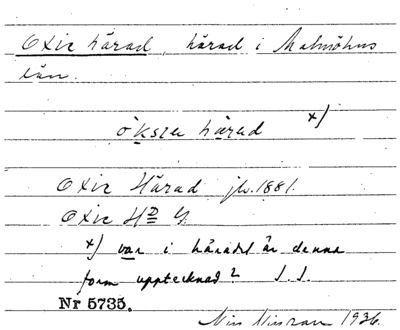 Oxie härad, härad i Malmöhus
län.
öksɪɛ härad x)
Oxie Härad jb. 1881.
Oxie HD G.
x) var i häradet är denna
form upptecknad? S.I.
Nr 5735.
Nils Nilsson 1936.